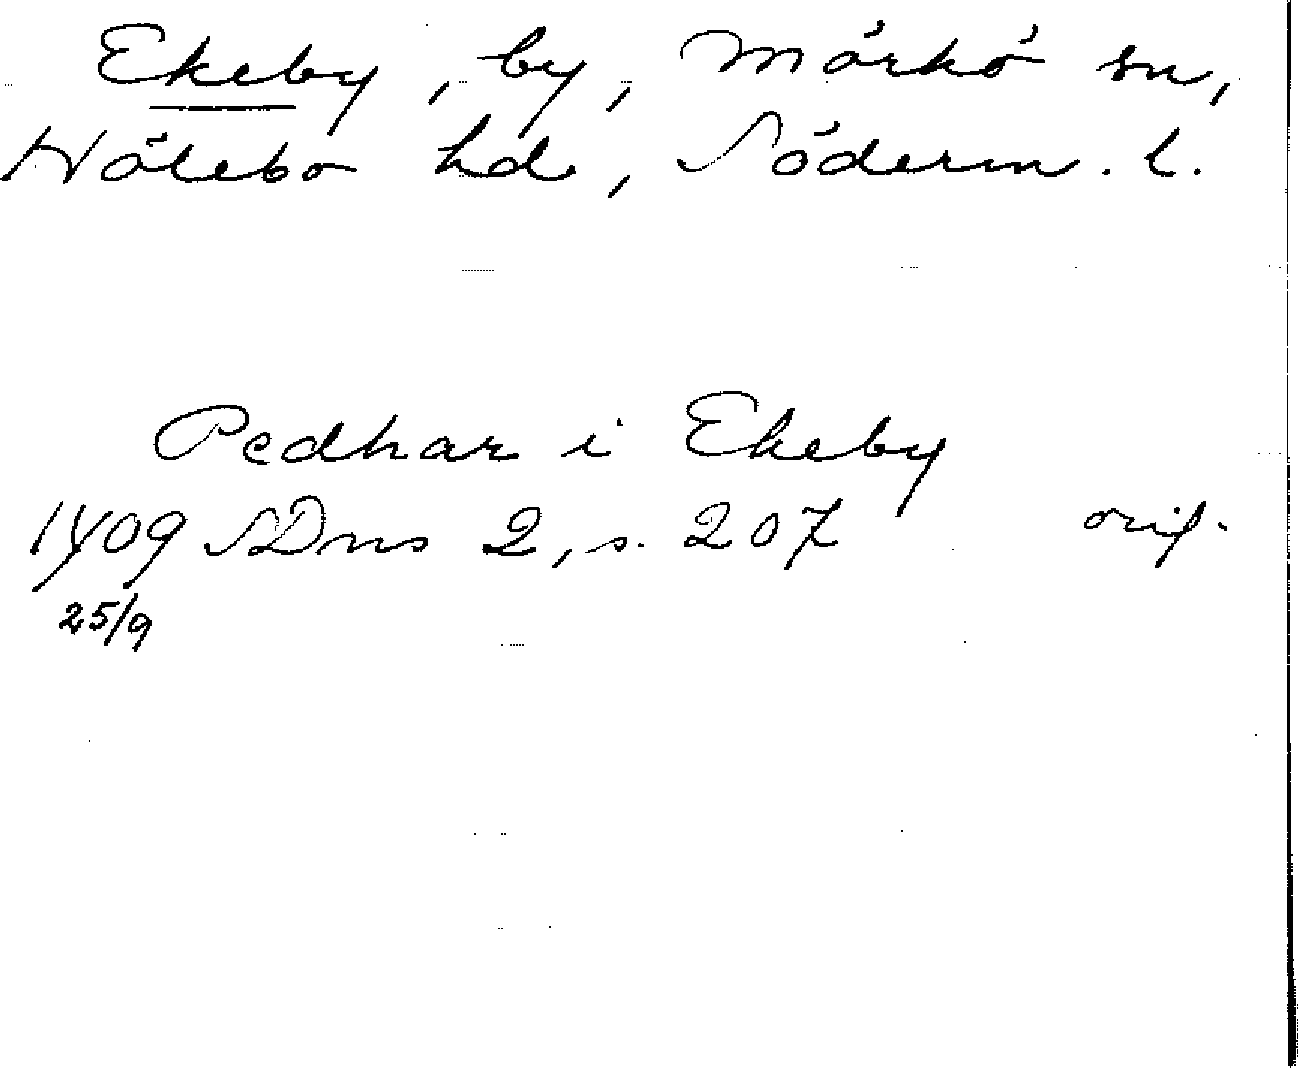 Ekeby, by, Mörkö sn,
Hölebo hd, Söderm. l.
Pedhar i Ekeby
1409 SDns 2, s. 207 orig.
25/9